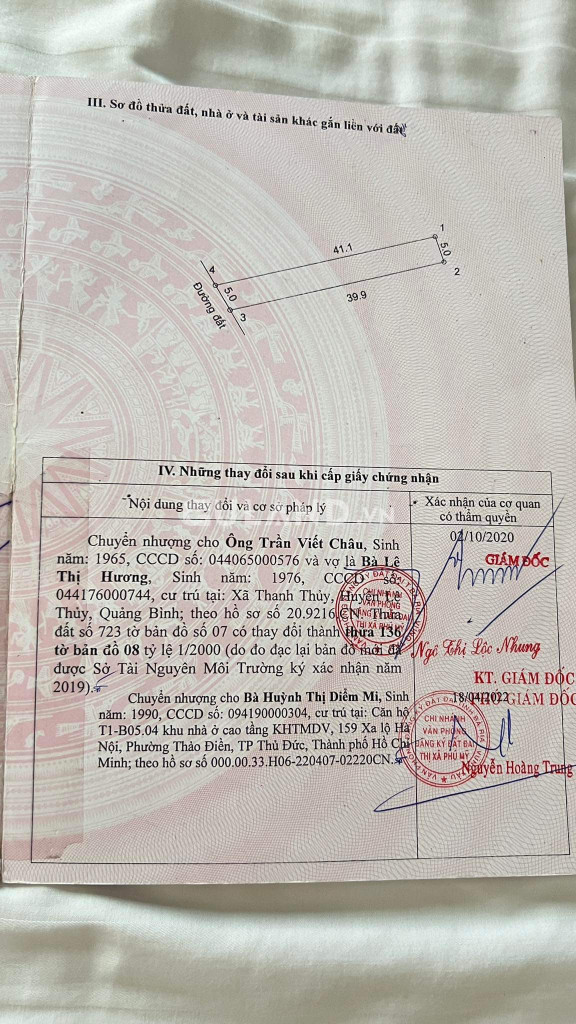 III. Sơ đồ thửa đất, nhà ở và tài sản khác gắn liền với đất
1
41.1
5.0
2
4
5.0
39.9
3
Đường đất
IV. Những thay đổi sau khi cấp giấy chứng nhận
Nội dung thay đổi và cơ sở pháp lý
Xác nhận của cơ quan
có thẩm quyền
Chuyển nhượng cho Ông Trần Viết Châu, Sinh
năm: 1965, CCCD số: 044065000576 và vợ là Bà Lê
Thị Hương, Sinh năm: 1976, CCCD số:
044176000744, cư trú tại: Xã Thanh Thủy, Huyện Lệ
Thủy, Quảng Bình; theo hồ sơ số 20.9216.CN. Thửa
đất số 723 tờ bản đồ số 07 có thay đổi thành thửa 136
tờ bản đồ 08 tỷ lệ 1/2000 (do đo đạc lại bản đồ mới đã
được Sở Tài Nguyên Môi Trường ký xác nhận năm
2019).
02/10/2020
GIÁM ĐỐC
CHI NHÁNH
VĂN PHÒNG
ĐĂNG KÝ ĐẤT ĐAI
THỊ XÃ PHÚ MỸ
Ngô Thị Lộc Nhung
Chuyển nhượng cho Bà Huỳnh Thị Diễm Mi, Sinh
năm: 1990, CCCD số: 094190000304, cư trú tại: Căn hộ
T1-B05.04 khu nhà ở cao tầng KHTMDV, 159 Xa lộ Hà
Nội, Phường Thảo Điền, TP Thủ Đức, Thành phố Hồ Chí
Minh; theo hồ sơ số 000.00.33.H06-220407-02220CN.
KT. GIÁM ĐỐC
18/04/2022
GIÁM ĐỐC
CHI NHÁNH
VĂN PHÒNG
ĐĂNG KÝ ĐẤT ĐAI
THỊ XÃ PHÚ MỸ
Nguyễn Hoàng Trung